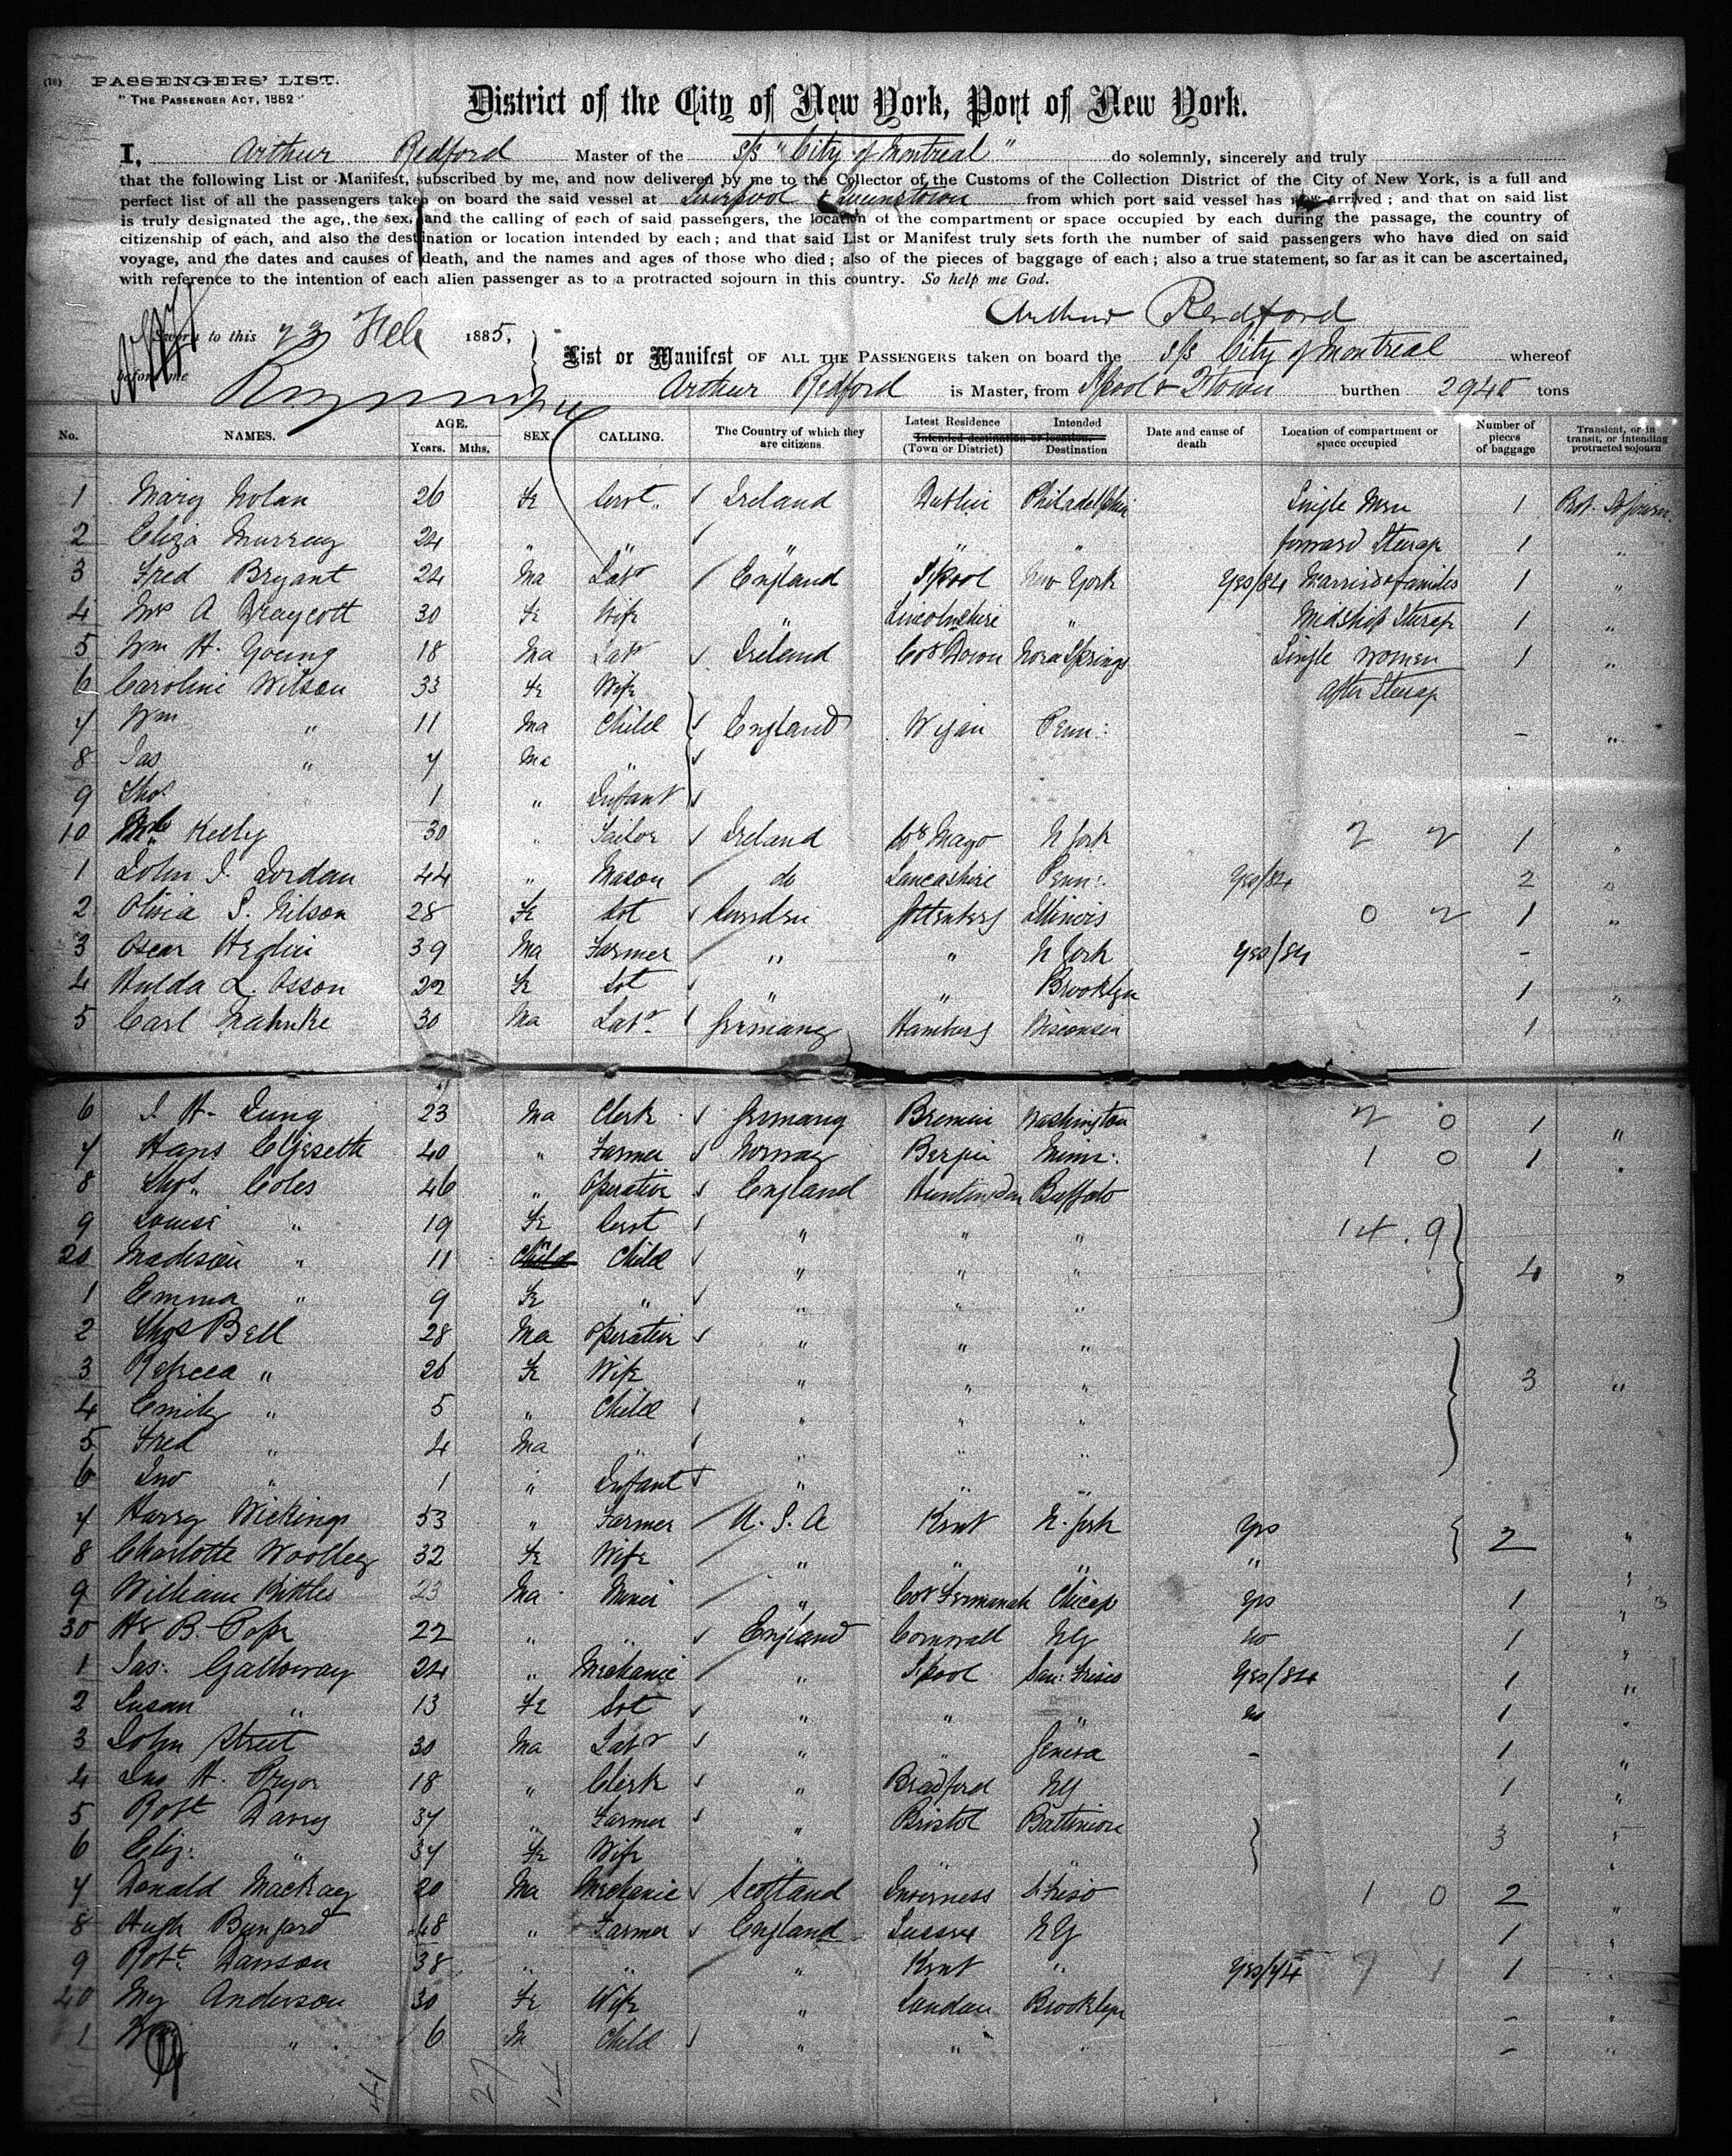 (10) PASSENGERS' LIST.
"THE PASSENGER ACT, 1882"
District of the City of New York, Port of New York.
I, Arthur Redford Master of the s/s "City of Montreal" do solemnly, sincerely and truly
that the following List or Manifest, subscribed by me, and now delivered by me to the Collector of the Customs of the Collection District of the City of New York, is a full and
perfect list of all the passengers taken on board the said vessel at Liverpool & Queenstown from which port said vessel has now arrived; and that on said list
is truly designated the age, the sex, and the calling of each of said passengers, the location of the compartment or space occupied by each during the passage, the country of
citizenship of each, and also the destination or location intended by each; and that said List or Manifest truly sets forth the number of said passengers who have died on said
voyage, and the dates and causes of death, and the names and ages of those who died; also of the pieces of baggage of each; also a true statement, so far as it can be ascertained,
with reference to the intention of each alien passenger as to a protracted sojourn in this country. So help me God.
Arthur Redford
Sworn to this 23 Feb 1885,
before me
List or Manifest OF ALL THE PASSENGERS taken on board the s/s City of Montreal whereof
Arthur Redford is Master, from L'pool & Q'town burthen 2940 tons
No. NAMES. AGE. Years. Mths. SEX. CALLING. The Country of which they are citizens. Latest Residence Intended destination or location. (Town or District) Intended Destination Date and cause of death Location of compartment or space occupied Number of pieces of baggage Transient, or in transit, or intending protracted sojourn
1 Mary Nolan 26 Fe Servt Ireland Dublin Philadelphia Single Men 1 Prot. Sojourn
2 Eliza Murray 24 " " " " " forward Steerage 1 "
3 Fred Bryant 24 Ma Labr England L'pool New York Yes/84 Married & families 1 "
4 Mrs A Draycott 30 Fe Wife " Lincolnshire " Midship Steerage 1 "
5 Wm H. Young 18 Ma Labr Ireland Co Down Nora Springs Single women 1 "
6 Caroline Wilson 33 Fe Wife after Steerage
7 Wm " 11 Ma Child England Wigan Penn: - "
8 Jas " 7 Ma "
9 Thos " 1 " Infant
10 Kelly 30 " Tailor Ireland Co Mayo N York 2 2 1 "
1 John J. Jordan 44 " Mason do Lancashire Penn: Yes/84 2 "
2 Olivia S. Nilson 28 Fe Sot Sweden Gottenberg Illinois 0 2 1 "
3 Oscar 39 Ma Farmer " " N York Yes/84 -
4 Hulda L. Osson 22 Fe Sot " " Brooklyn 1 "
5 Carl Mahnke 30 Ma Labr Germany Hamburg Wisconsin 1
6 J. H. Jung 23 Ma Clerk Germany Bremen Washington 2 0 1 "
7 Hans 40 " Farmer Norway Bergen Minn: 1 0 1 "
8 Thos Coles 46 " Operative England Huntingdon Buffalo
9 Louise " 19 Fe Servt " " " 14 . 9
20 Madison " 11 Child Child " " " 4 "
1 Emma " 9 Fe " " " "
2 Thos Bell 28 Ma Operative " " "
3 Rebecca " 26 Fe Wife " " " 3 "
4 Emily " 5 " Child " " "
5 Fred " 4 Ma " " " "
6 Jno " 1 " Infant " " "
7 Harry Wickings 53 " Farmer U. S. A Kent N. York Yes 2 "
8 Charlotte Woolley 32 Fe Wife " " " "
9 William Kittles 23 Ma Miner " Co Fermanah Chicago Yes 1 "
30 Hy B. Pope 22 " " England Cornwall NY no 1
1 Jas: Galloway 24 " Mechanic " L'pool San: Frisco Yes/84 1 "
2 Susan " 13 Fe Sot " " " no 1 "
3 John Street 30 Ma Labr " " Geneva - 1 "
4 Jno H. Pryor 18 " Clerk " Bradford NY 1 "
5 Robt Davey 37 " Farmer " Bristol Baltimore 3 "
6 Eliz: " 37 Fe Wife "
7 Donald Mackay 20 Ma Mechanic Scotland Inverness S. Frisco 1 0 2 "
8 Hugh Bungard 48 " Farmer England Sussex NY 1 "
9 Robt. Dawson 38 " " " Kent " Yes/74 1 "
40 My Anderson 30 Fe Wife " London Brooklyn - "
1 " 6 M Child " " " - "
41 27 14